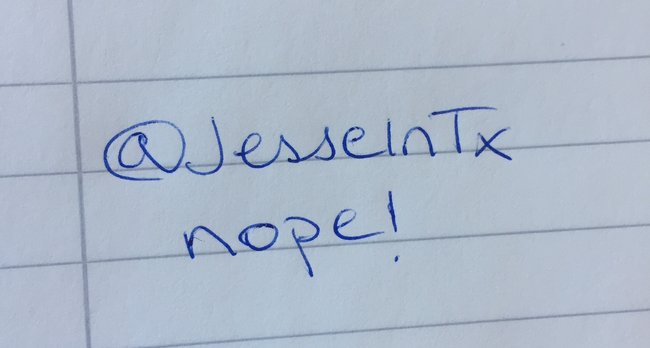 @JesseInTx
nope!